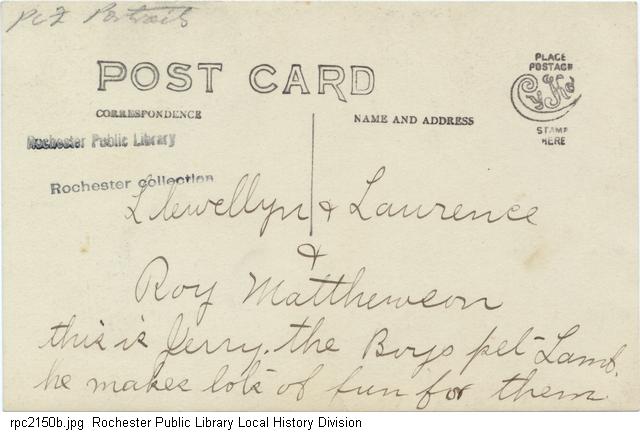 PCF Portraits
POST CARD
PLACE
POSTAGE
CORRESPONDENCE
NAME AND ADDRESS
CyKo
STAMP
HERE
Rochester Public Library
Rochester collection
Llewellyn & Lawrence
&
Roy Matthewson
this is Jerry. the Boys pet Lamb.
he makes lots of fun for them
rpc2150b.jpg Rochester Public Library Local History Division